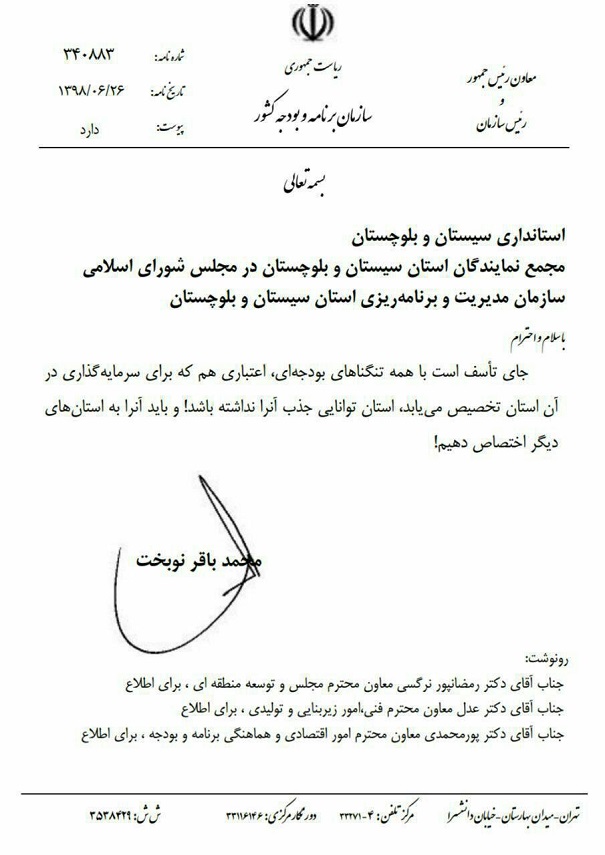 ریاست جمهوری
سازمان برنامه و بودجه کشور
معاون رئیس جمهور
و
رئیس سازمان
شماره نامه: ۳۴۰۸۸۳
تاریخ نامه: ۱۳۹۸/۰۶/۲۶
پیوست: دارد
بسمه تعالی
استانداری سیستان و بلوچستان
مجمع نمایندگان استان سیستان و بلوچستان در مجلس شورای اسلامی
سازمان مدیریت و برنامه‌ریزی استان سیستان و بلوچستان
باسلام و احترام
جای تأسف است با همه تنگناهای بودجه‌ای، اعتباری هم که برای سرمایه‌گذاری در
آن استان تخصیص می‌یابد، استان توانایی جذب آنرا نداشته باشد! و باید آنرا به استان‌های
دیگر اختصاص دهیم!
محمد باقر نوبخت
رونوشت:
جناب آقای دکتر رمضانپور نرگسی معاون محترم مجلس و توسعه منطقه ای ، برای اطلاع
جناب آقای دکتر عدل معاون محترم فنی،امور زیربنایی و تولیدی ، برای اطلاع
جناب آقای دکتر پورمحمدی معاون محترم امور اقتصادی و هماهنگی برنامه و بودجه ، برای اطلاع
تهران-میدان بهارستان-خیابان دانشسرا مرکز تلفن: ۴-۳۳۲۷۱ دورنگار مرکزی: ۳۳۱۱۶۱۴۶ ش ش: ۳۵۳۸۴۲۹